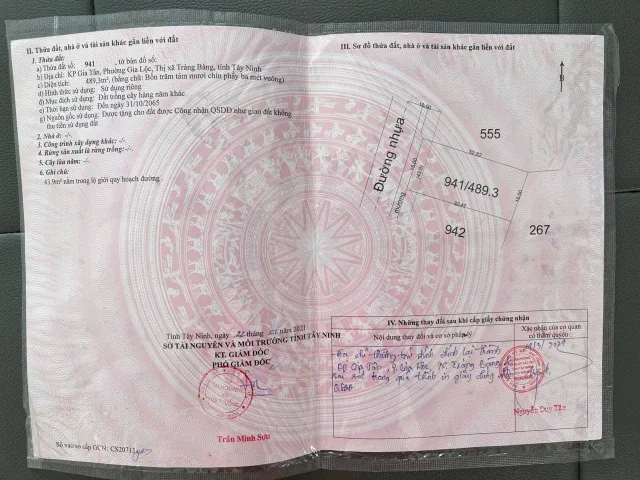 II. Thửa đất, nhà ở và tài sản khác gắn liền với đất
1. Thửa đất:
a) Thửa đất số: 941 , tờ bản đồ số:
b) Địa chỉ: KP Gia Tân, Phường Gia Lộc, Thị xã Trảng Bàng, tỉnh Tây Ninh
c) Diện tích: 489,3m², (bằng chữ: Bốn trăm tám mươi chín phẩy ba mét vuông)
d) Hình thức sử dụng: Sử dụng riêng
đ) Mục đích sử dụng: Đất trồng cây hàng năm khác
e) Thời hạn sử dụng: Đến ngày 31/10/2065
g) Nguồn gốc sử dụng: Được tặng cho đất được Công nhận QSDĐ như giao đất không
thu tiền sử dụng đất
2. Nhà ở: -/-
3. Công trình xây dựng khác: -/-
4. Rừng sản xuất là rừng trồng: -/-
5. Cây lâu năm: -/-
6. Ghi chú:
43.9m² nằm trong lộ giới quy hoạch đường.
Tỉnh Tây Ninh, ngày tháng năm 2021
SỞ TÀI NGUYÊN VÀ MÔI TRƯỜNG TỈNH TÂY NINH
KT. GIÁM ĐỐC
PHÓ GIÁM ĐỐC
Trần Minh Sơn
Số vào sổ cấp GCN: CS20713
III. Sơ đồ thửa đất, nhà ở và tài sản khác gắn liền với đất
B
555
Đường nhựa
mương
941/489.3
942
267
IV. Những thay đổi sau khi cấp giấy chứng nhận
Nội dung thay đổi và cơ sở pháp lý
Xác nhận của cơ quan
có thẩm quyền
Nguyễn Duy Tân